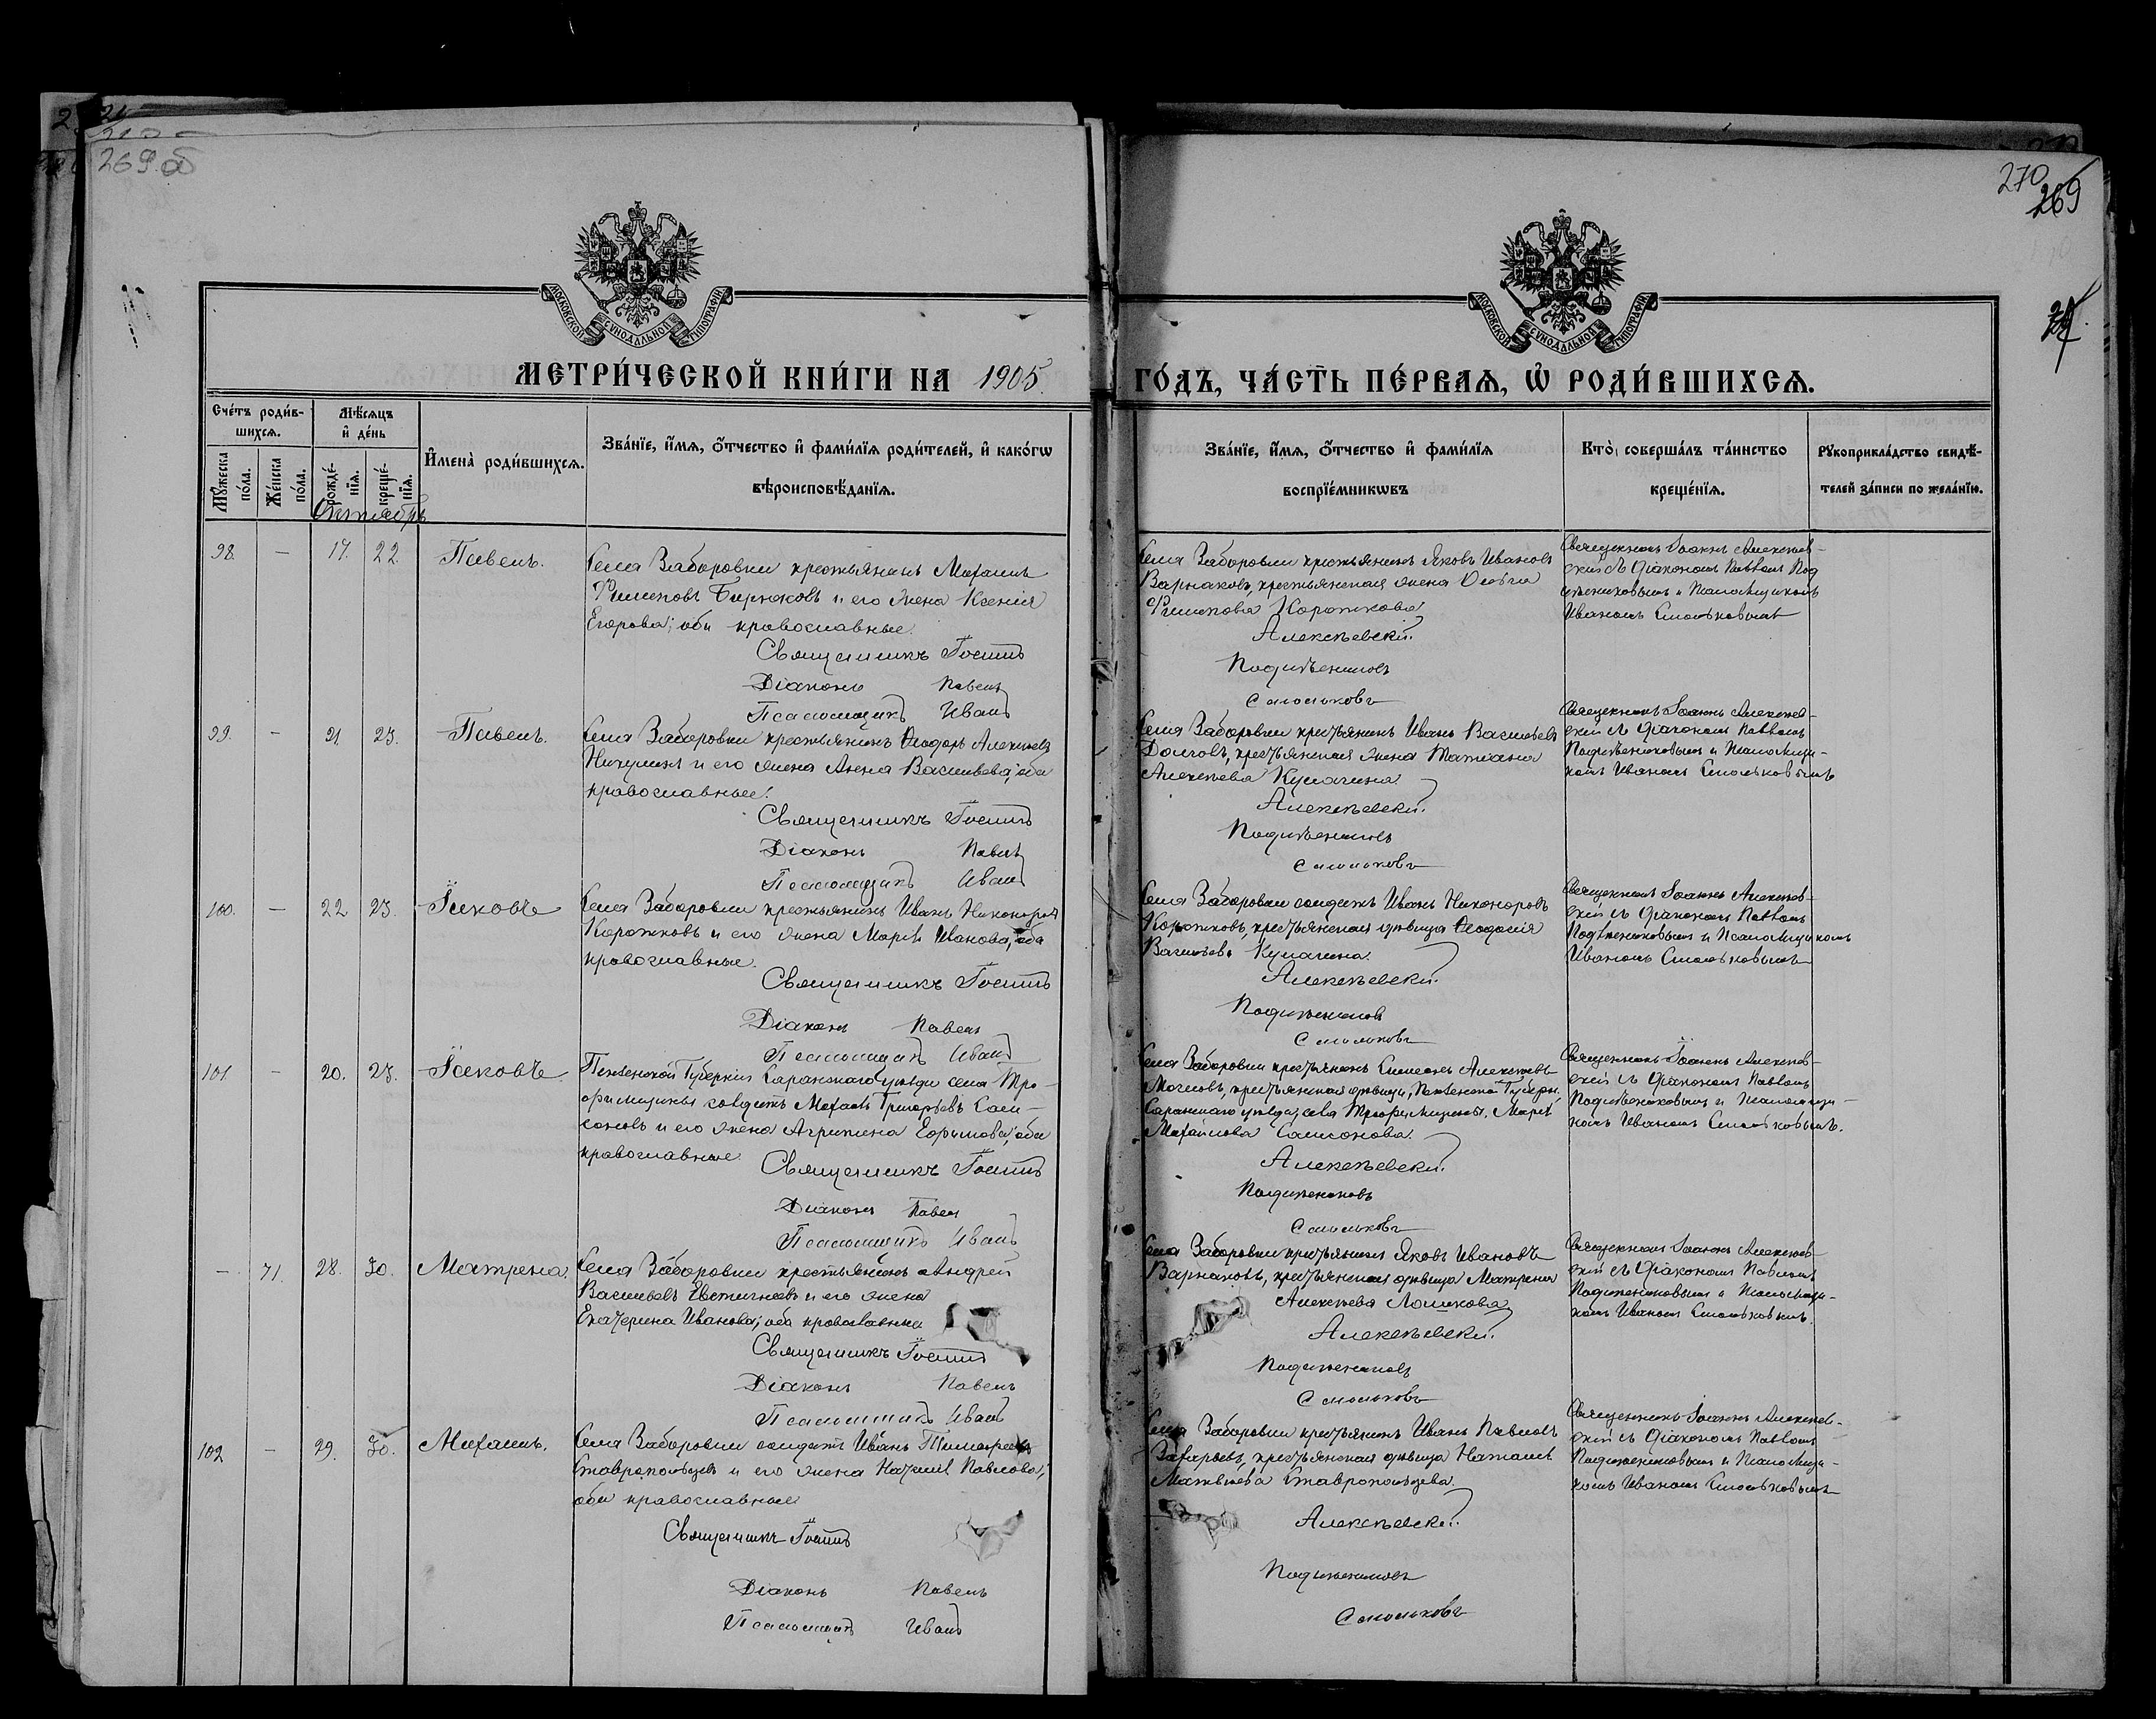 269 об
270
269
МОСКОВСКОЙ СѴНОДАЛЬНОЙ ТИПОГРАФІИ
МОСКОВСКОЙ СѴНОДАЛЬНОЙ ТИПОГРАФІИ
МЕТРИ́ЧЕСКОЙ КНИ́ГИ НА 1905.
ГО́ДЪ, ЧА́СТЬ ПЕ́РВАѦ, Ѡ҆ РОДИ́ВШИХСѦ.
Сче́тъ роди́в-
шихсѧ.
Мѣ́сѧцъ
и҆ де́нь
Мꙋ́жеска по́ла.
Же́нска по́ла.
рожде́-
нїѧ.
креще́-
нїѧ.
И҆мена̀ роди́вшихсѧ.
Зва́нїе, и҆́мѧ, ѻ҆́тчество и҆ фами́лїѧ роди́телей, и҆ како́гѡ
вѣроисповѣ́данїѧ.
Зва́нїе, и҆́мѧ, ѻ҆́тчество и҆ фами́лїѧ
воспрїе́мникѡвъ
Кто̀ соверша́лъ та́инство
креще́нїѧ.
Рꙋкоприкла́дство свидѣ́-
телей за́писи по жела́нїю.
Октябрь
98. — 17. 22. Павелъ.
Села Заборовки крестьянинъ Михаилъ
Филиповъ Бирюковъ и его жена Ксенія
Егорова; оба православные.
Священникъ Іоаннъ
Діаконъ Павелъ
Псаломщикъ Иванъ
Села Заборовки крестьянинъ Яковъ Ивановъ
Варнаковъ, крестьянская жена Ольга
Филипова Корожкова
Алексѣевскій.
Подъяченковъ
Смольковъ
Священникъ Іоаннъ Алексѣев-
скій съ Діакономъ Павломъ
и Псаломщикомъ
Иваномъ Смольковымъ
99. — 21. 23. Павелъ.
Села Заборовки крестьянинъ Ѳеодоръ Алексѣевъ
Никулинъ и его жена Анна Васильева; оба
православные.
Священникъ Іоаннъ
Діаконъ Павелъ
Псаломщикъ Иванъ
Села Заборовки крестьянинъ Иванъ Васильевъ
Долговъ, крестьянская жена Татіана
Алексѣева Кулагина
Алексѣевскій.
Смольковъ
Священникъ Іоаннъ Алексѣев-
скій съ Діакономъ Павломъ
и Псаломщи-
комъ Иваномъ Смольковымъ
100. — 22 23. Іаковъ
Села Заборовки крестьянинъ Иванъ Никоноровъ
Корожковъ и его жена Марія Иванова; оба
православные.
Священникъ Іоаннъ
Діаконъ Павелъ
Псаломщикъ Иванъ
Села Заборовки солдатъ Иванъ Никоноровъ
Корожковъ, крестьянская дѣвица Ѳеодосія
Васильева Кулагина.
Алексѣевскій.
Смольковъ
Священникъ Іоаннъ Алексѣев-
скій съ Діакономъ Павломъ
и Псаломщикомъ
Иваномъ Смольковымъ
101. — 20. 23. Іаковъ
Пензенской Губерніи Саранскаго уѣзда села Тро-
фимщины солдатъ Михаилъ Григорьевъ Сам-
соновъ и его жена Агрипина Ефимова; оба
православные
Священникъ Іоаннъ
Діаконъ Павелъ
Псаломщикъ Иванъ
Села Заборовки крестьянинъ Симеонъ Алексѣевъ
крестьянская дѣвица, Пензенской Губерн.
Саранскаго уѣзда, села Трофимщины, Марія
Михайлова Самсонова.
Алексѣевскій.
Смольковъ
Священникъ Іоаннъ Алексѣев-
скій съ Діакономъ Павломъ
и Псаломщи-
комъ Иваномъ Смольковымъ.
— 71. 28. 30. Матрена.
Села Заборовки крестьянинъ Андрей
Васильевъ Евстигнеевъ и его жена
Екатерина Иванова; оба православные
Священникъ Іоаннъ
Діаконъ Павелъ
Псаломщикъ Иванъ
Села Заборовки крестьянинъ Яковъ Ивановъ
Варнаковъ, крестьянская дѣвица Матрена
Алексѣева Ломкова
Алексѣевскій.
Смольковъ
Священникъ Іоаннъ Алексѣев-
скій съ Діакономъ Павломъ
и Псаломщи-
комъ Иваномъ Смольковымъ.
102 — 29. 30. Михаилъ.
Села Заборовки солдатъ Иванъ Тимофеевъ
Ставропольцевъ и его жена Наталія Павлова;
оба православные
Священникъ Іоаннъ
Діаконъ Павелъ
Псаломщикъ Иванъ
Села Заборовки крестьянинъ Иванъ Павловъ
Захарьевъ, крестьянская дѣвица Наталія
Матвѣева Ставропольцева.
Алексѣевскій.
Смольковъ
Священникъ Іоаннъ Алексѣев-
скій съ Діакономъ Павломъ
и Псаломщи-
комъ Иваномъ Смольковымъ